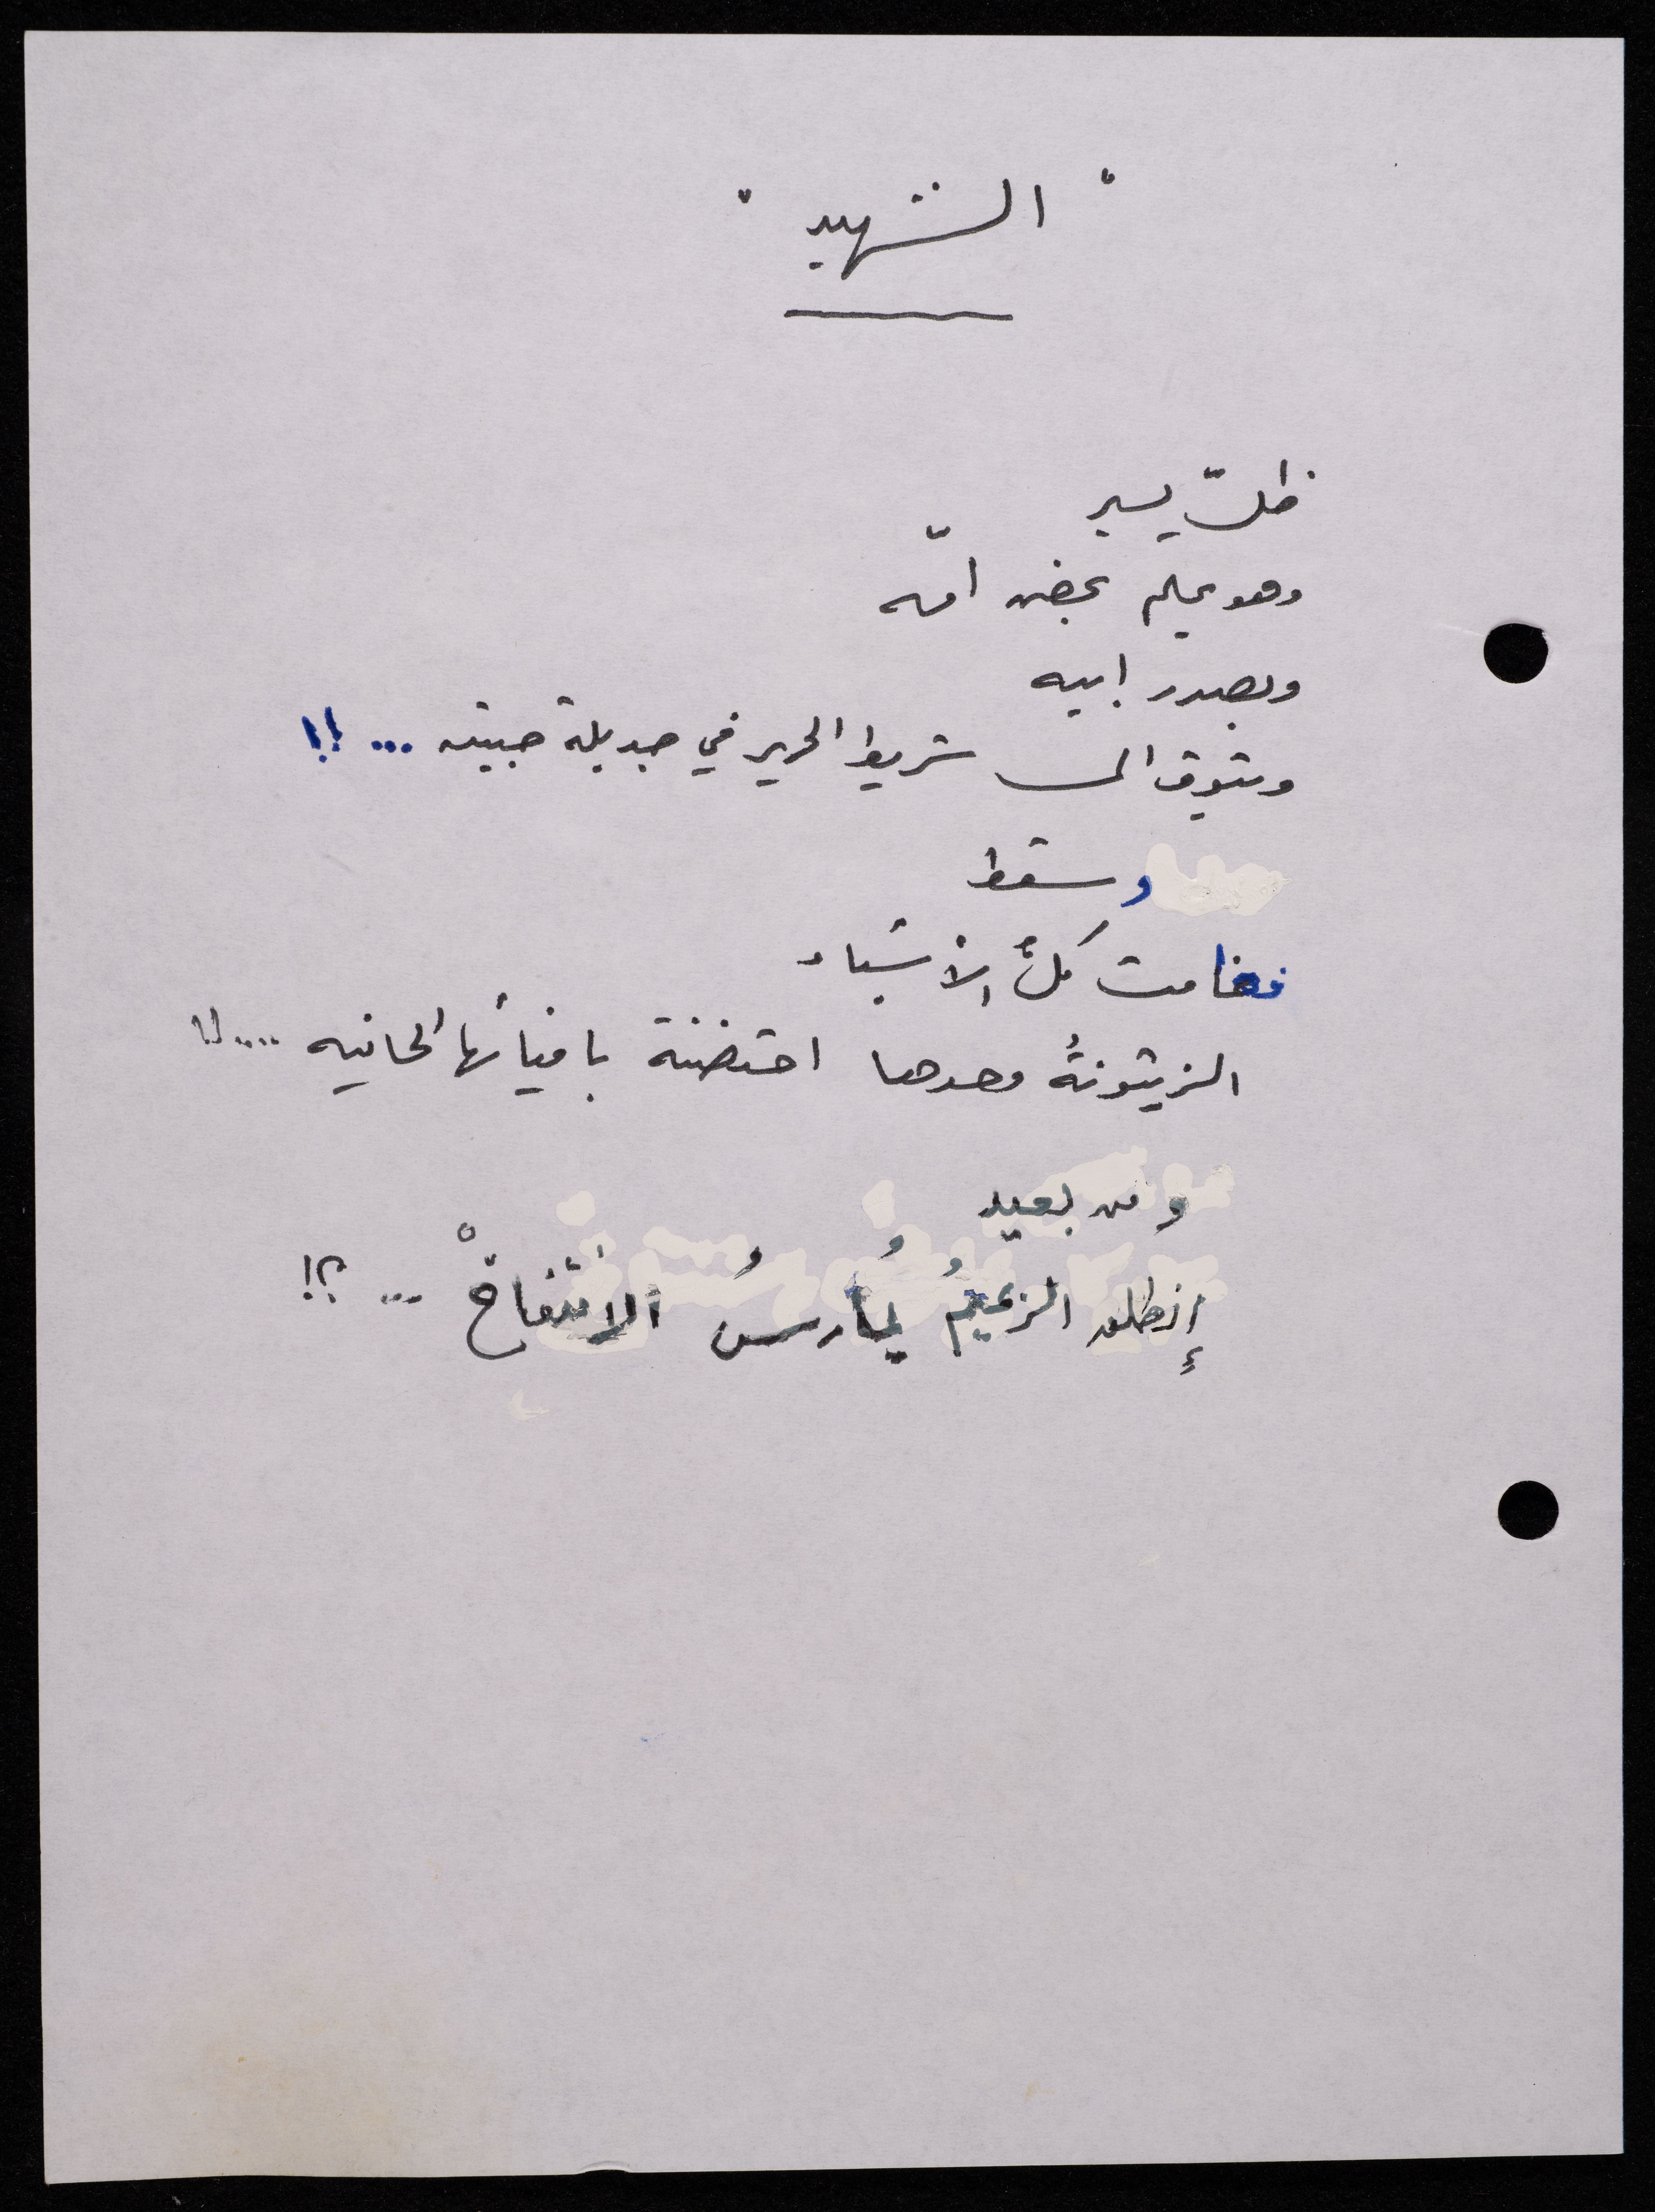 " الشهيد "
ظلّ يسير
وهو يحلم بحضن امّه
وبصدر ابيه
ويتوق الى شريط الحرير في جديلة حبيبته ... !!
وسقط
فغامت كلُّ الأشياء
الزيتونةُ وحدها احتضنته بافيائها الحانيه .... !!
ومن بعيد
إنطلق الزعيمُ يُمارسُ الانتفاخْ ... ؟!